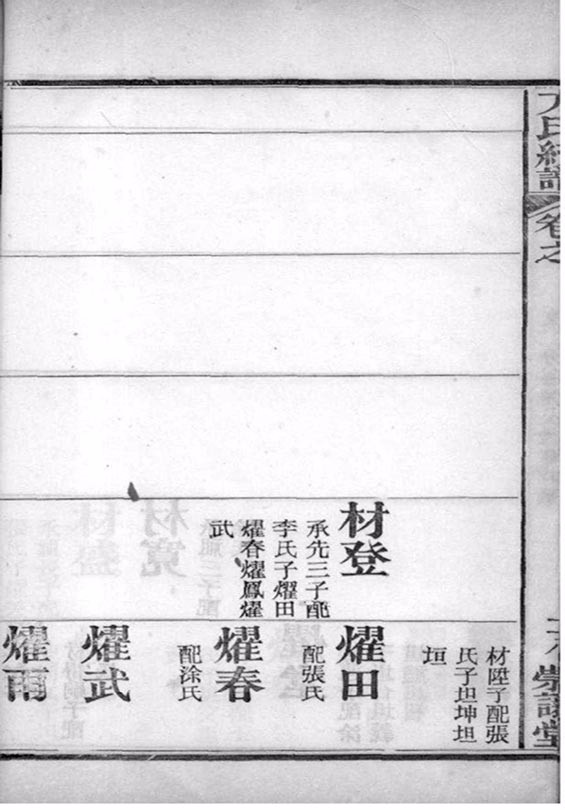 卷之
材登
承先三子配
李氏子燿田
燿春燿鳳燿
武
材陞子配張
氏子坤坦
垣
燿田
配張氏
燿春
配涂氏
燿武
燿